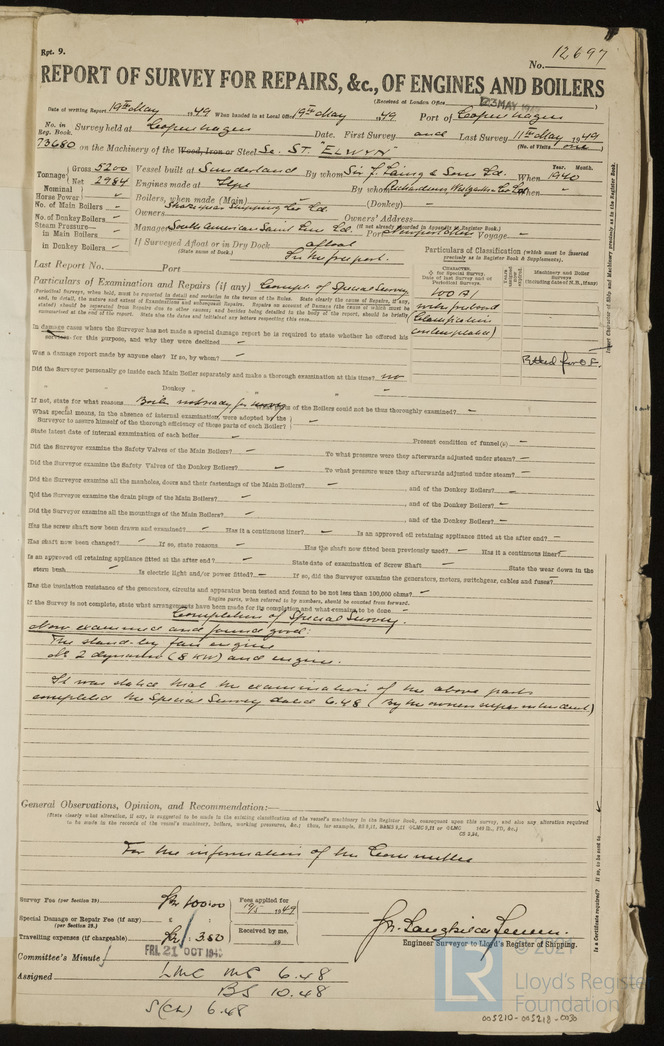 Rpt. 9.
No. 12697
REPORT OF SURVEY FOR REPAIRS, &c., OF ENGINES AND BOILERS
(Received at London Office 23 MAY 1949)
Date of writing Report 19th May 1949 When handed in at Local Office 19th May 1949 Port of Copenhagen
No. in Reg. Book. Survey held at Copenhagen Date. First Survey and Last Survey 11th May 1949
(No. of Visits one)
73680 on the Machinery of the Wood, Iron or Steel Sc. ST. "ELWYN"
Tonnage Gross 5200 Vessel built at Sunderland By whom Sir J. Laing & Sons Ld. When 1940
Year. Month.
Net 2984 Engines made at By whom When "
Nominal Horse Power – Boilers, when made (Main) – (Donkey) –
No. of Main Boilers – Owners Shakespear Shipping Co Ld. Owners' Address
No. of Donkey Boilers – (If not already recorded in Appendix to Register Book.)
Steam Pressure— in Main Boilers – Managers South American Saint Line Ld. Port Newport Mon Voyage –
in Donkey Boilers – If Surveyed Afloat or in Dry Dock afloat
(State name of Dock.) In the freeport.
Last Report No. Port
Particulars of Classification (which must be inserted precisely as in Register Book & Supplements).
Particulars of Examination and Repairs (if any) Complt of Special Survey
CHARACTER.
Machinery and Boiler Surveys (including dates of N.B., if any)
100A1
with freeboard
(Classification
contemplated)
Fitted for O.F.
In damage cases where the Surveyor has not made a special damage report he is required to state whether he offered his
services for this purpose, and why they were declined –
Was a damage report made by anyone else? If so, by whom? –
Did the Surveyor personally go inside each Main Boiler separately and make a thorough examination at this time? no
" Donkey " " " –
If not, state for what reasons Boiler not ready for survey What parts of the Boilers could not be thus thoroughly examined? –
What special means, in the absence of internal examination, were adopted by the Surveyor to assure himself of the thorough efficiency of those parts of each Boiler? –
State latest date of internal examination of each boiler – Present condition of funnel(s) –
Did the Surveyor examine the Safety Valves of the Main Boilers? – To what pressure were they afterwards adjusted under steam? –
Did the Surveyor examine the Safety Valves of the Donkey Boilers? – To what pressure were they afterwards adjusted under steam? –
Did the Surveyor examine all the manholes, doors and their fastenings of the Main Boilers? – , and of the Donkey Boilers? –
Did the Surveyor examine the drain plugs of the Main Boilers? – , and of the Donkey Boilers? –
Did the Surveyor examine all the mountings of the Main Boilers? – , and of the Donkey Boilers? –
Has the screw shaft now been drawn and examined? – Has it a continuous liner? – Is an approved oil retaining appliance fitted at the after end? –
Has shaft now been changed? – If so, state reasons – Has the shaft now fitted been previously used? – Has it a continuous liner? –
Is an approved oil retaining appliance fitted at the after end? – State date of examination of Screw Shaft – State the wear down in the
stern bush – Is electric light and/or power fitted? – If so, did the Surveyor examine the generators, motors, switchgear, cables and fuses? –
Has the insulation resistance of the generators, circuits and apparatus been tested and found to be not less than 100,000 ohms? –
Engine parts, when referred to by numbers, should be counted from forward.
If the Survey is not complete, state what arrangements have been made for its completion and what remains to be done –
Completion of Special Survey.
Now examined and found good:
The stand-by fan engine
No 2 dynamo (8 KW) and engine.
It was stated that the examination of the above parts
completed the Special Survey dated 6.48 (by the owners superintendent)
General Observations, Opinion, and Recommendation:—
(State clearly what alteration, if any, is suggested to be made in the existing classification of the vessel's machinery in the Register Book, consequent upon this survey, and also any alteration required
to be made in the records of the vessel's machinery, boilers, working pressures, &c.;
For the information of the Committee
Survey Fee (per Section 29) Kr 400.00 Fees applied for 19/5 1949
Special Damage or Repair Fee (if any) £ :
(per Section 29.)
Travelling expenses (if chargeable) Kr 3.50 Received by me, 19
Engineer Surveyor to Lloyd's Register of Shipping.
Committee's Minute FRI. 21 OCT 1949
Assigned LMC MS 6.48
BS 10.48
S(CL) 6.48
Is a Certificate required? If so, to be sent to
© 2021
LR
Lloyd's Register
Foundation
005210-005218-0030